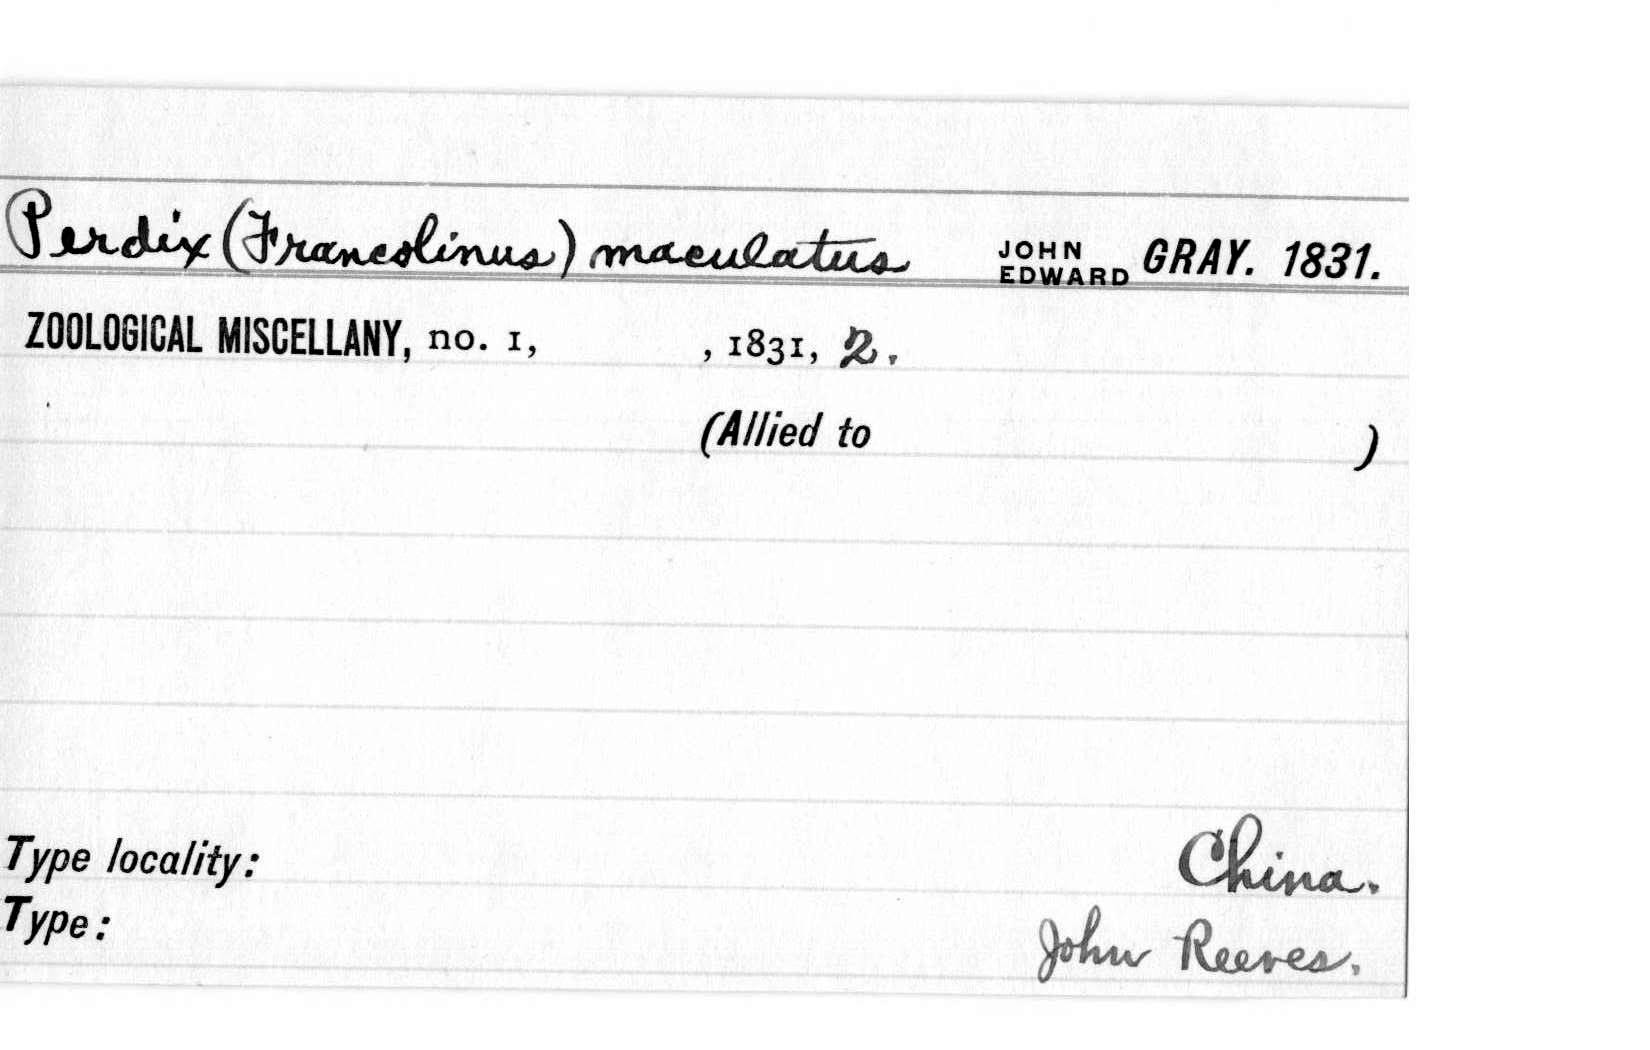 Perdix (Francolinus) maculatus JOHN EDWARD GRAY. 1831.
ZOOLOGICAL MISCELLANY, no. 1, , 1831, 2.
(Allied to )
Type locality: China.
Type: John Reeves.